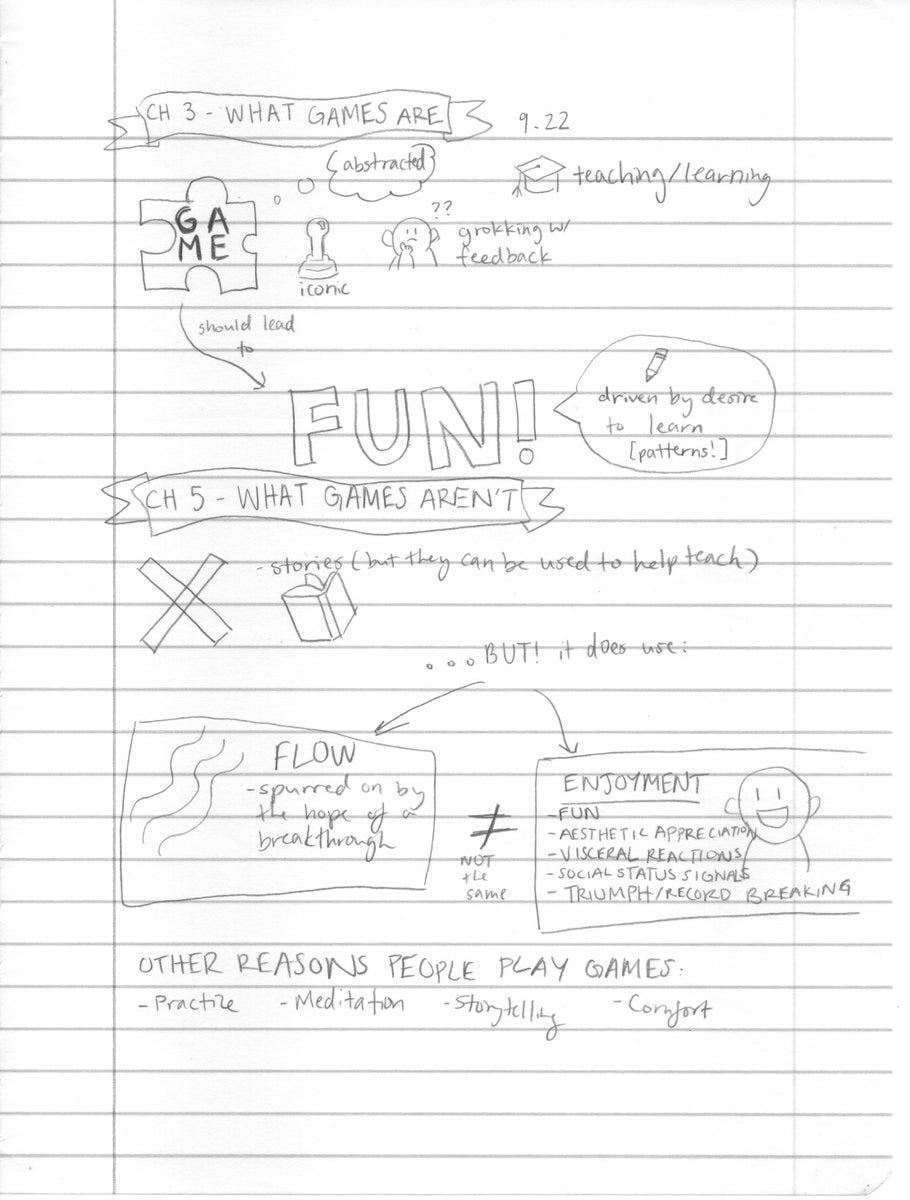 CH 3 - WHAT GAMES ARE
9.22
{abstracted}
teaching/learning
GA
ME
??
grokking w/
feedback
iconic
should lead
to
FUN!
driven by desire
to learn
[patterns!]
CH 5 - WHAT GAMES AREN'T
- stories (but they can be used to help teach)
...BUT! it does use:
FLOW
- spurred on by
the hope of a
breakthrough
≠
NOT
the
same
ENJOYMENT
- FUN
- AESTHETIC APPRECIATION
- VISCERAL REACTIONS
- SOCIAL STATUS SIGNALS
- TRIUMPH/RECORD BREAKING
OTHER REASONS PEOPLE PLAY GAMES:
- Practice - Meditation - Storytelling - Comfort